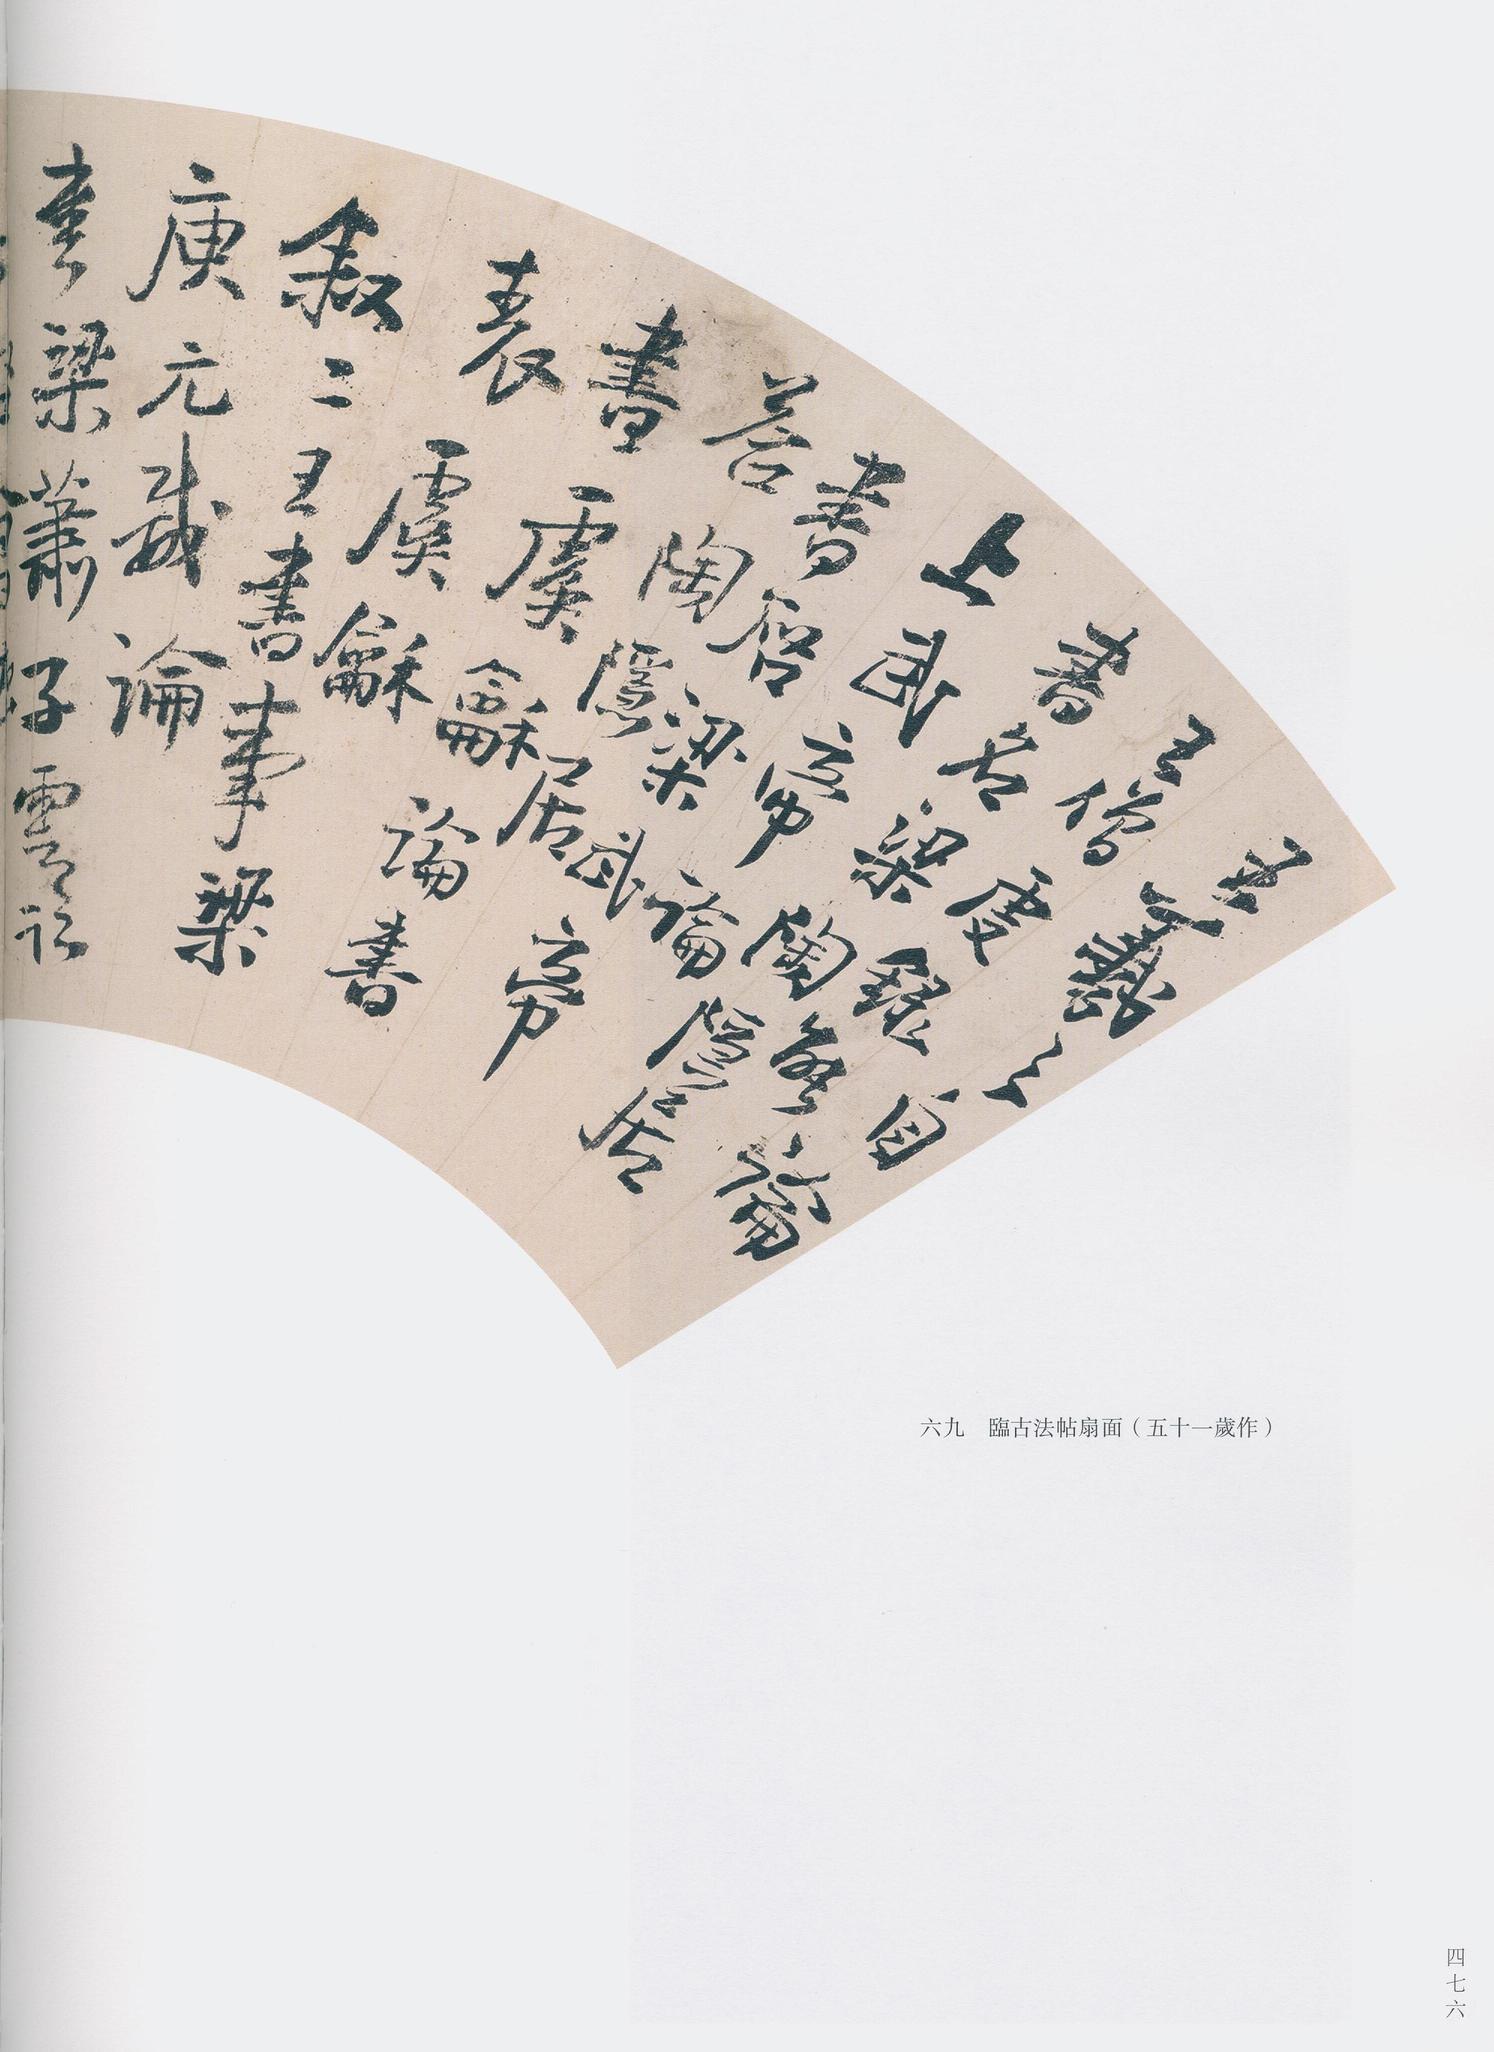 王羲之自論
王僧虔録能
書名梁陶隱居
上武帝論
書啓梁武帝
答陶隱居
書虞龢論書
表虞龢
叙二王書事梁
庾元威論
書梁蕭子雲
六九 臨古法帖扇面（五十一歲作）
四七六